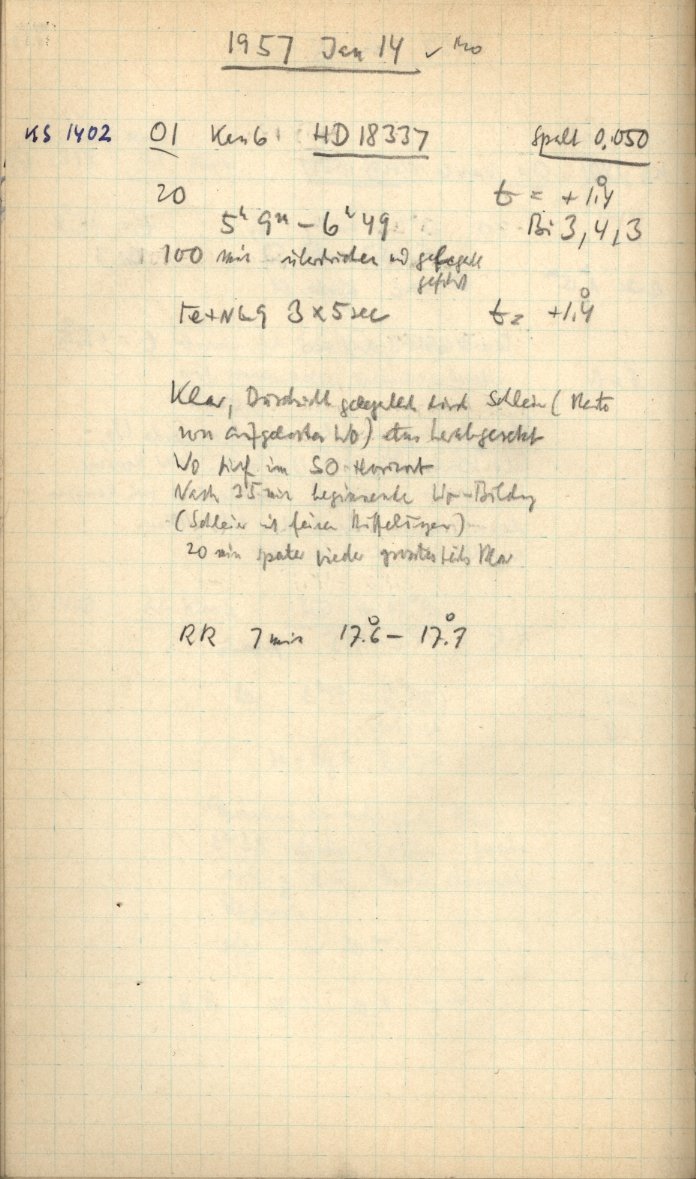 1957 Jan 14 ✓
KS 1402 01 HD 18337 Spalt 0,050
20 t = +1.°4
5ʰ 9ᵐ – 6ʰ 49 Bi 3,4,3
100 min und
geführt
Fe+Ne 3 x 5 sec t = +1.°4
Klar, Durchsicht durch Schleier (Reste
von aufgelöster Wo) etwas herabgesetzt
Wo tief im SO-Horizont
Nach 35 min beginnende Wo-Bildung
(Schleier mit feinen)
20 min später wieder grösstenteils klar
RR 7 min 17.°6 – 17.°7